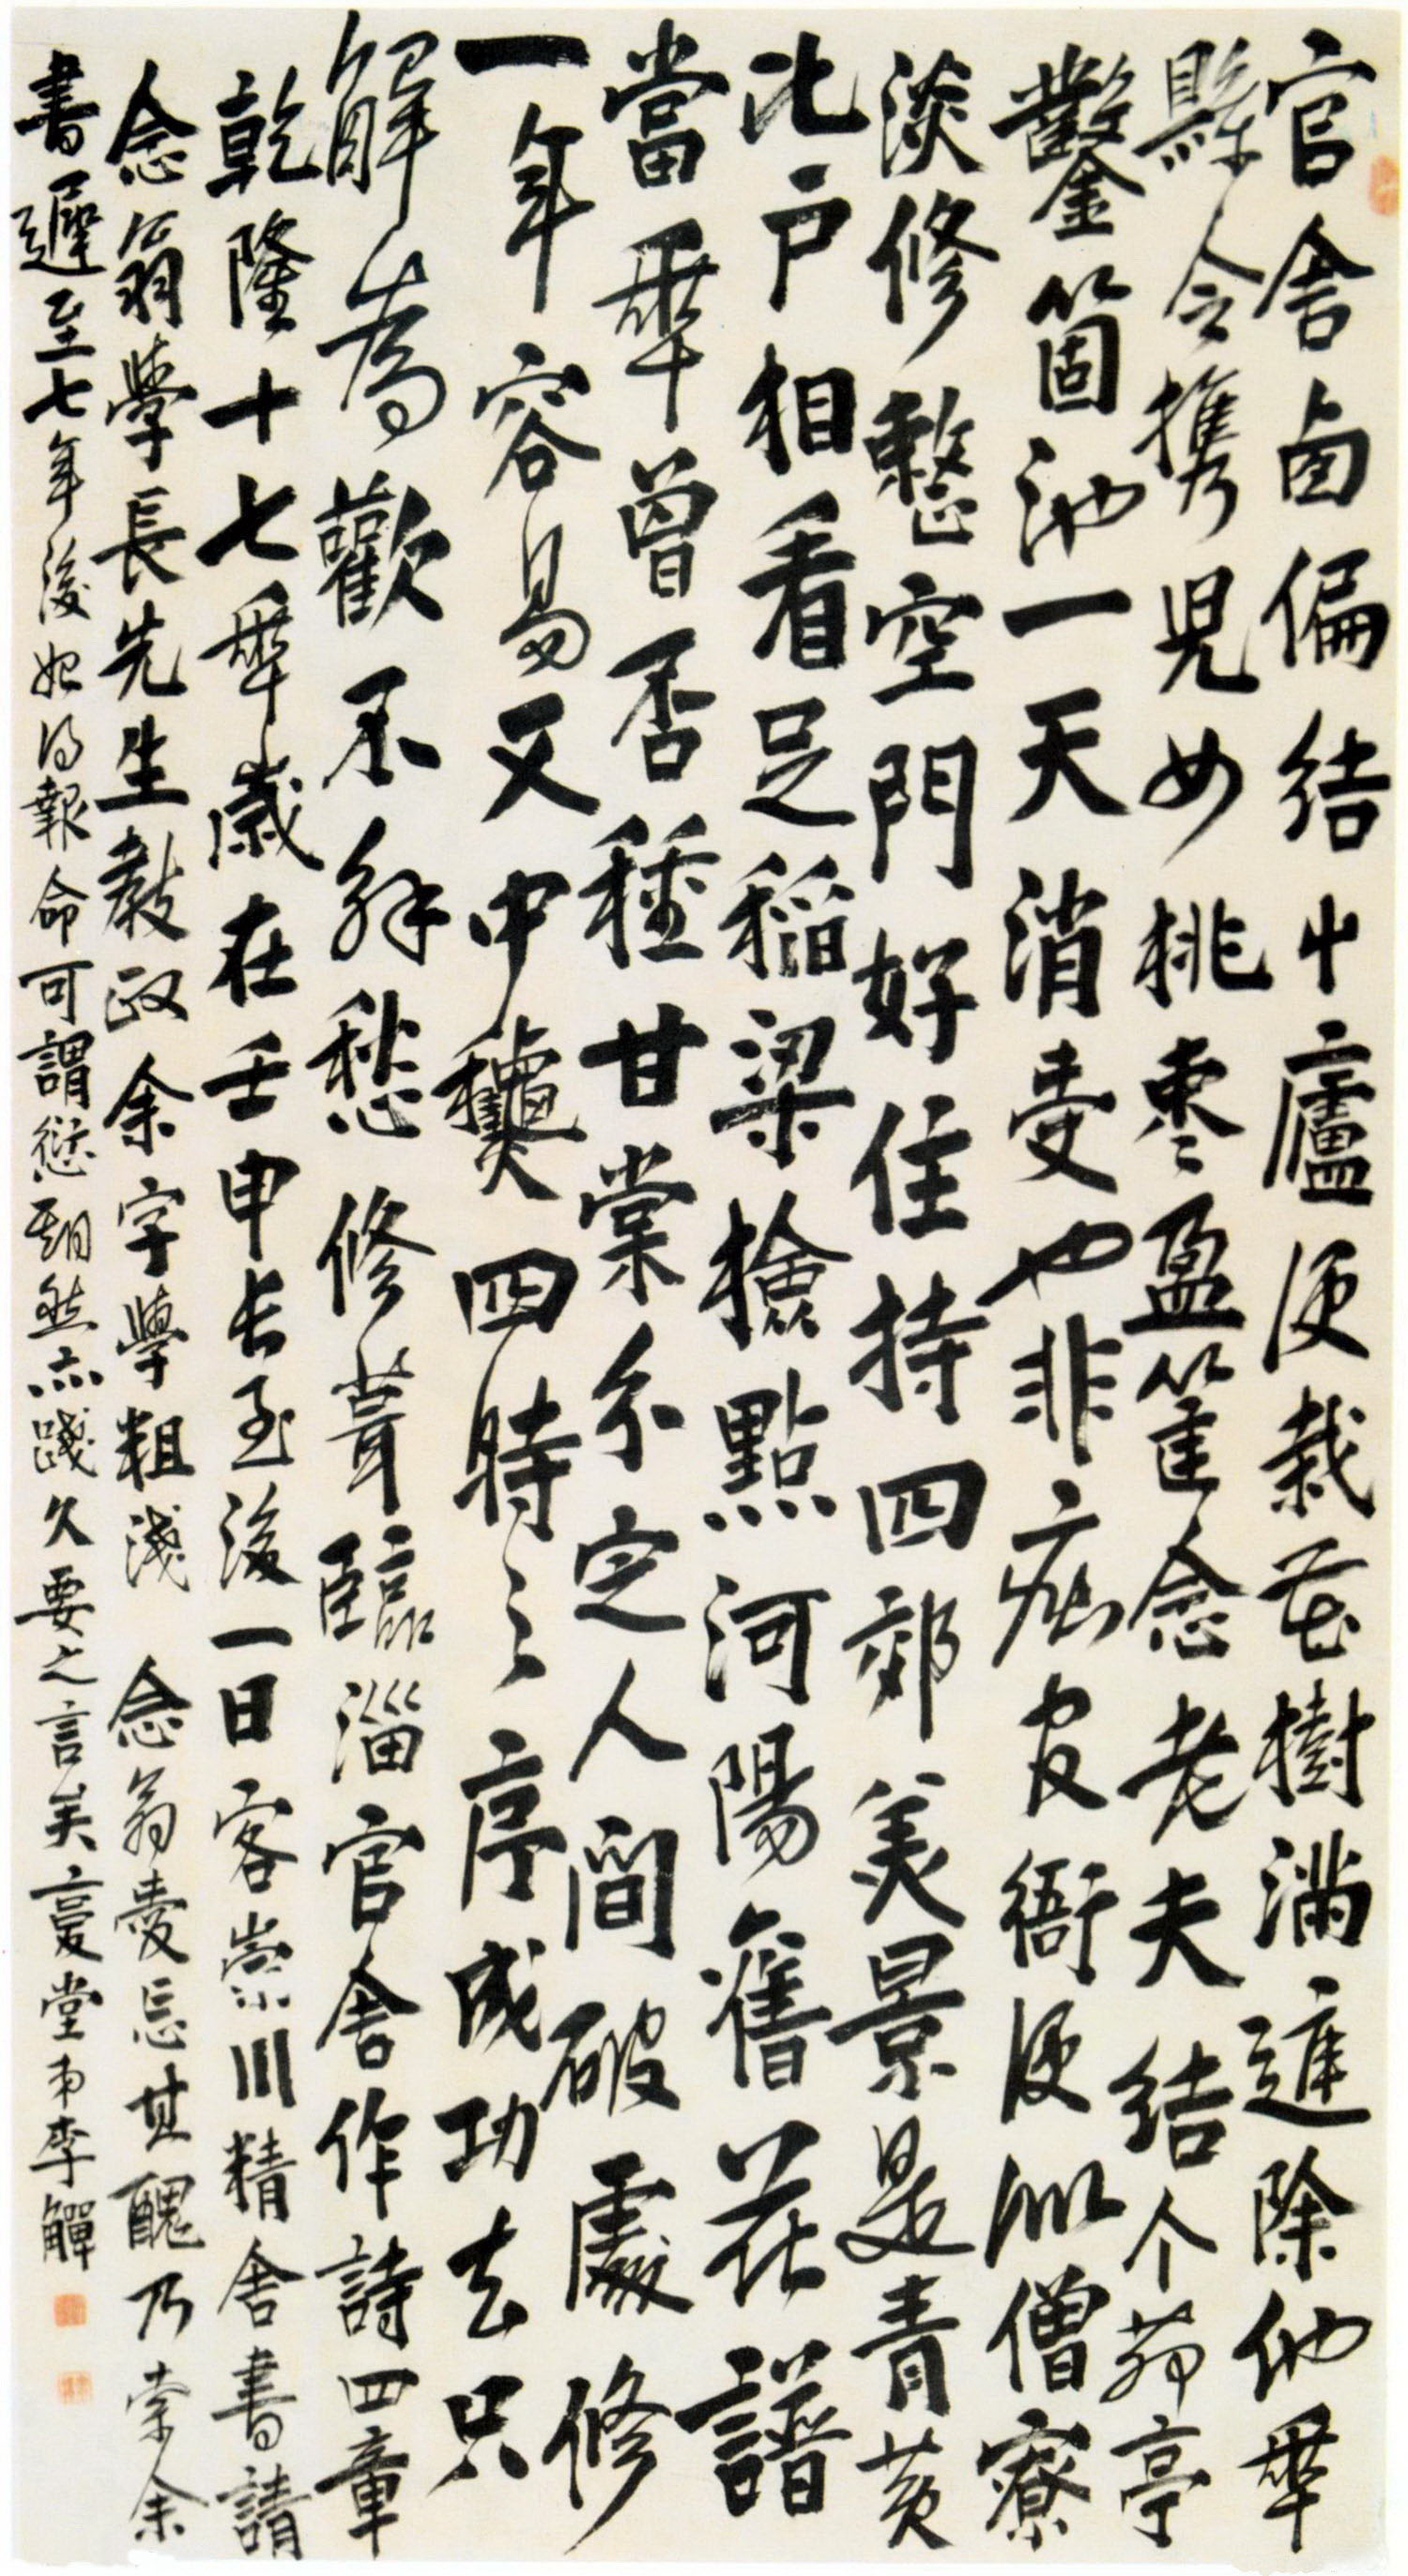 官舍鹵偏結草廬便栽花樹滿遮除他年
縣令攜兒女桃棗盈筐念老夫結个茆亭
鑿箇池一天消受也非癡官衙便似僧寮
淡修整空門好住持四郊美景是青黃
比戶相看足稻粱檢點河陽舊花譜
當年曾否種甘棠分定人間破處修
一年容易又中穐四時之序成功去只
解為歡不解愁修葺臨淄官舍作詩四章
乾隆十七年歲在壬申長至後一日客崇川精舍書請
念翁學長先生教政余字學粗淺念翁愛忘其醜乃索余
書遲至七年後始得報命可謂愆期然亦踐久要之言矣憂堂弟李鱓